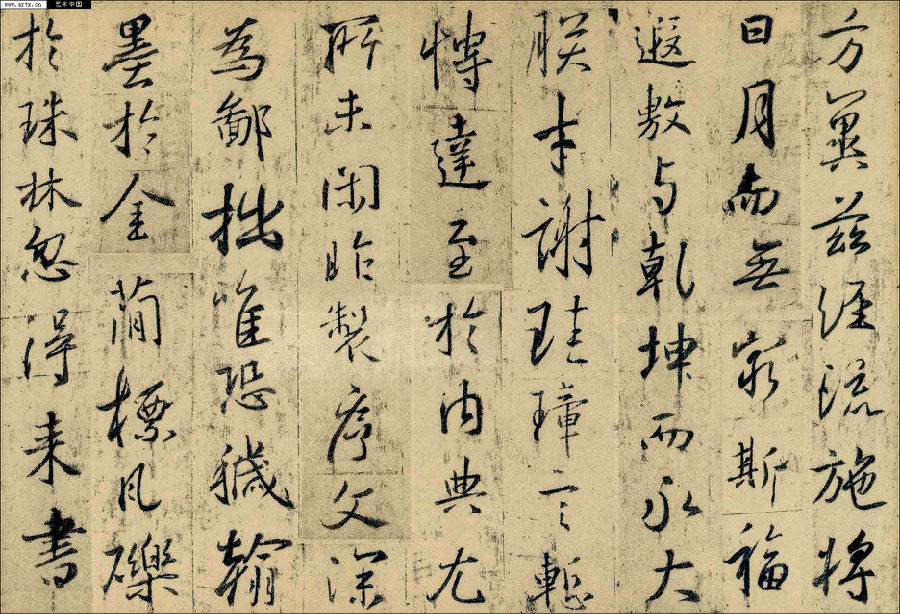 www.artx.cn 艺术中国
方冀茲經流施將
日月而無窮斯福
遐敷与乾坤而永大
朕才謝珪璋言慙
博達至於內典尤
所未閑昨製序文深
為鄙拙唯恐穢翰
墨於金簡標凡礫
於珠林忽得来書